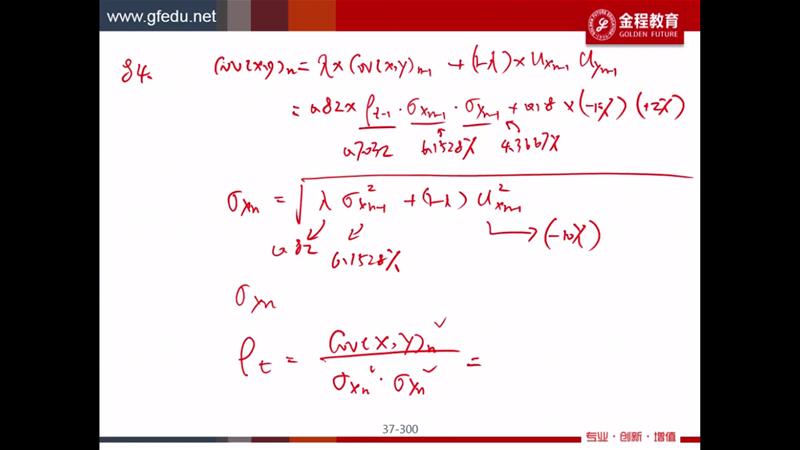 www.gfedu.net
金程教育
GOLDEN FUTURE
84. Cov(x,y)n = λ × Cov(x,y)n-1 + (1-λ) × Uxn-1 Uyn-1
= 0.82 × ρt-1 · σxn-1 · σyn-1 + 0.18 × (-10%) (+2%)
6.1528% 4.3667%
σxn = √ λ σ²xn-1 + (1-λ) U²xn-1
0.82 6.1528% (-10%)
σyn
ρt = Cov(x,y)n / σxn · σyn =
37-300
专业·创新·增值